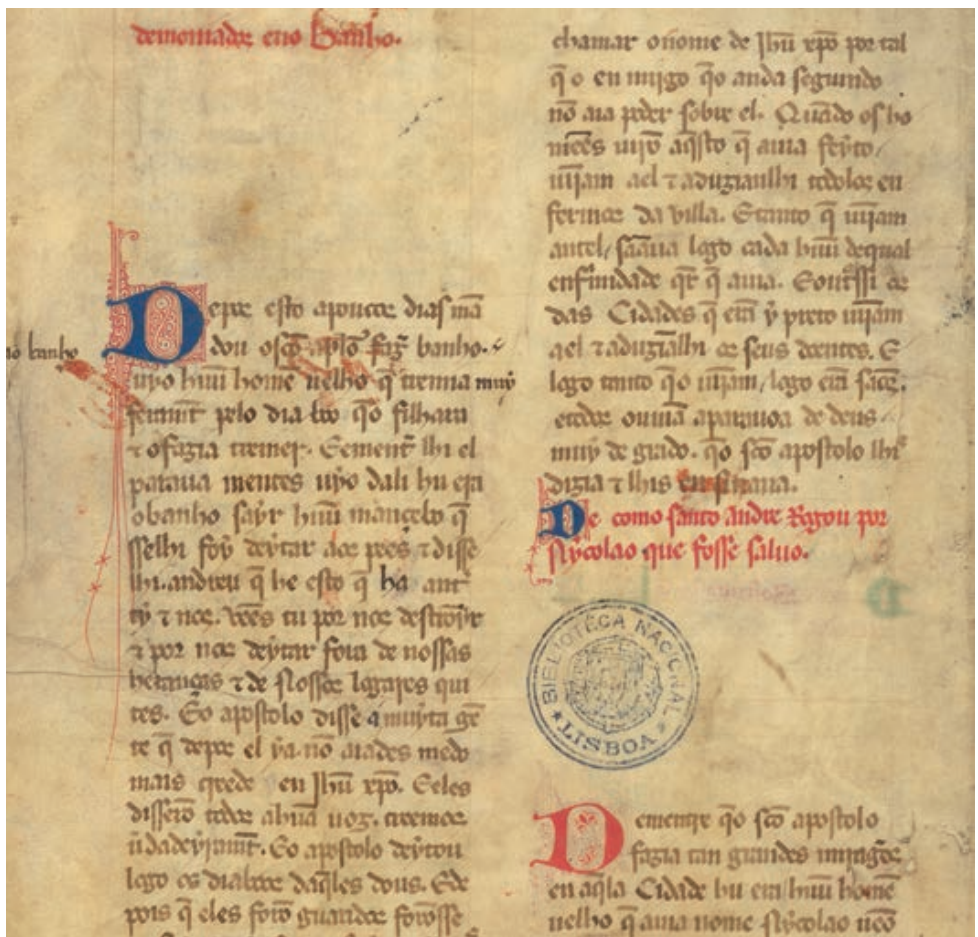 demoniados eno Banho.
Depos esto apoucos dias mã
dou oscõ apło faz̃ banho.
no banho
uyo hũu home uelho q̃ tremia muy
fermṽt pelo dia boo q̃o filhara
⁊ ofazia tremer. Ement̃ lhi el
parava mentes uyo dali hu era
obanho sayr hũu mancebo q̃
sselhi foy deytar aos pees ⁊ disse
lhi. andreu q̃ he esto q̃ ha ant̃
ty ⁊ nos. vees tu por nos destroyr
⁊ por nos deytar fora de nossas
heranças ⁊ de nossos logares qui
tes. E o apostolo disse a muyta gẽ
te q̃ depos el ya. nõ aiades medo
mais creede en Jhũ xpõ. E eles
disserõ todos ahũa uoz. creemos
ũdadeyramt̃. E o apostolo deytou
logo os diaboos daq̃les dous. E de
pois q̃ eles forõ guaridos forõsse
chamar o nome de Jhũ xpõ por tal
q̃ o en miigo q̃o anda segundo
nõ aia poder sobre el. Quãdo os ho
mẽes uirõ aq̃sto q̃ auia feyto/
uijam ael ⁊ adugiamlhi todolos en
fermos da villa. E tanto q̃ uijam
antel/ sãaua logo cada hũu de qual
enfirmidade q̃r q̃ auia. E outr̃ssi os
das Cidades q̃ erã y preto uijam
ael ⁊ adugiãlhi os seus doentes. E
logo tanto q̃o uijam/ logo erã sãos.
e todos ouuiã a paravoa de deus
muy de grado. q̃o scõ apostolo lhis
dizia ⁊ lhis ensinaua.
De como santo andre Rogou por
Nycolao que fosse saluo.
BIBLIOTECA NACIONAL
LISBOA
Dementre q̃o scõ apostolo
fazia tan grandes miragres
en aq̃la Cidade hu era hũu homẽ
uelho q̃ auia nome Nycolao ueo